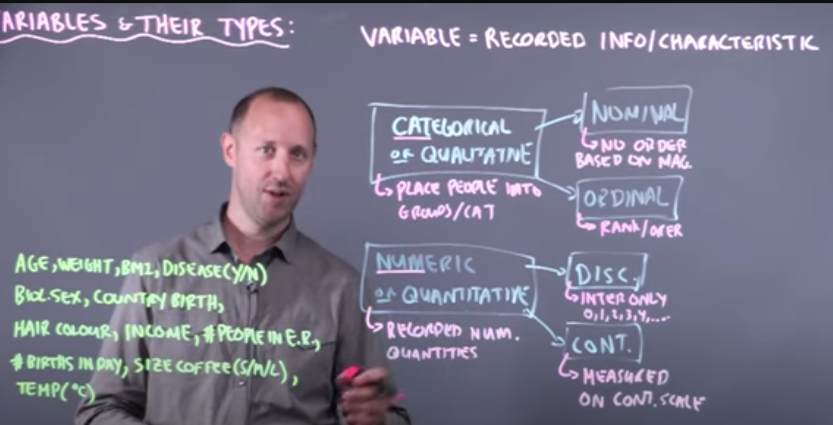 ARIABLES & THEIR TYPES:
VARIABLE = RECORDED INFO/CHARACTERISTIC
CATEGORICAL
OR QUALITATIVE
PLACE PEOPLE INTO
GROUPS/CAT
NOMINAL
NO ORDER
BASED ON MAG.
ORDINAL
RANK/ORDER
NUMERIC
OR QUANTITATIVE
RECORDED NUM.
QUANTITIES
DISC.
INTER ONLY
0,1,2,3,4,....
CONT.
MEASURED
ON CONT. SCALE
AGE, WEIGHT, BMI, DISEASE (Y/N)
BIOL. SEX, COUNTRY BIRTH,
HAIR COLOUR, INCOME, # PEOPLE IN E.R.,
# BIRTHS IN DAY, SIZE COFFEE (S/M/L),
TEMP (°C)